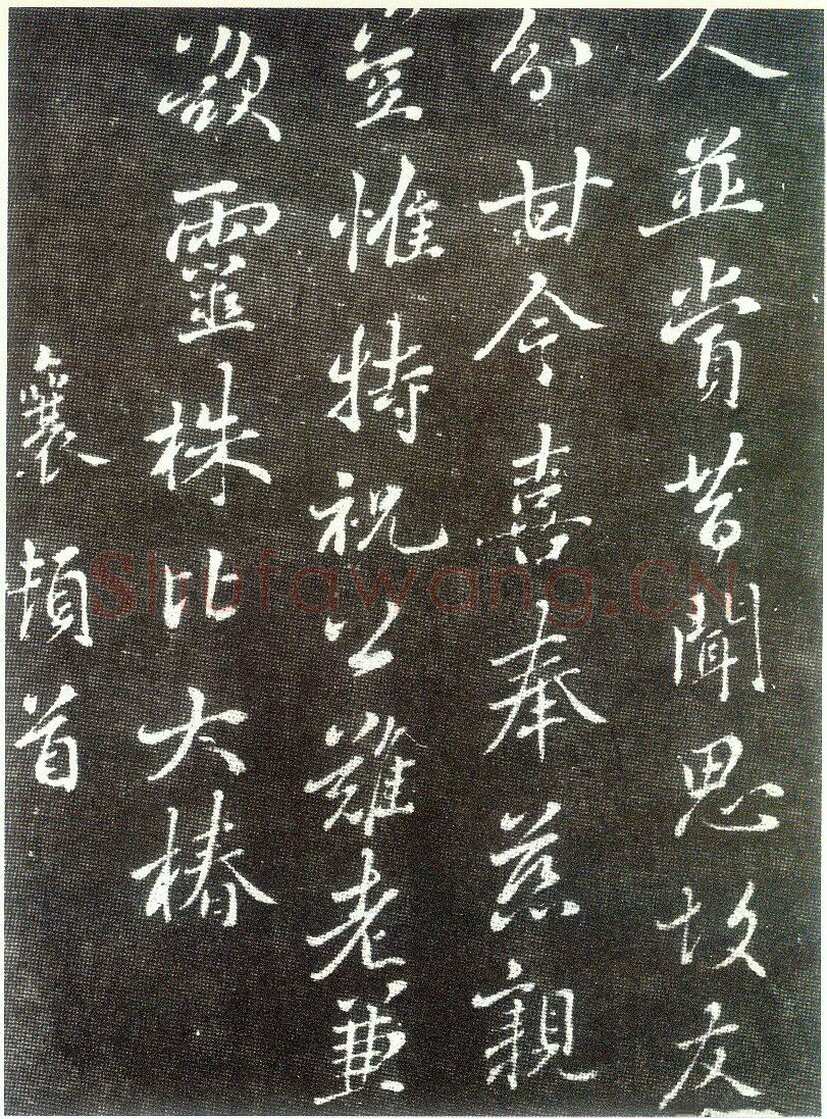 人並賞昔聞思故友
分甘今喜奉慈親
豈惟特祝公難老兼
欲靈株比大椿
襄頓首
Shufawang.CN